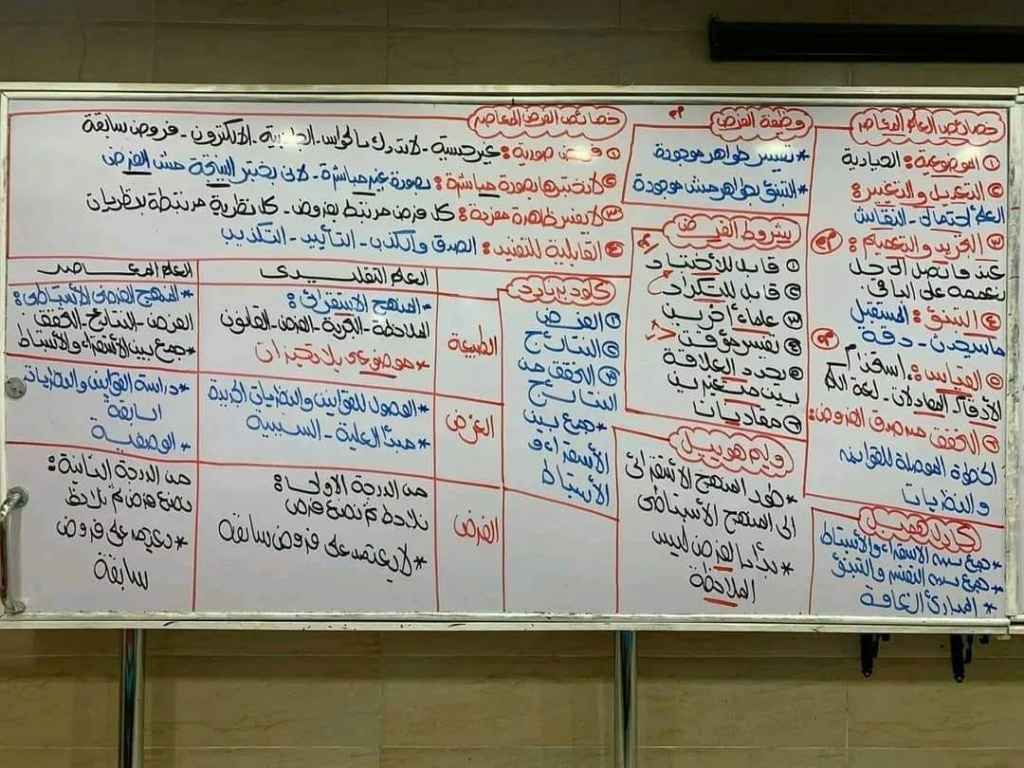 خصائص العلم المعاصر
① الموضوعية: الحيادية
② التعديل والتغيير:
العلم احتمالى - النقائض
③ التجريد والتعميم:
عند ما نصل الى حل
نعممه على الباقى
④ التنبؤ: المستقبل
ماسيحدث - دقة
⑤ القياس: استخدام
الأرقام - المعادلات - لغة الكم
⑥ التحقق من صدق الفروض:
الخطوة الموصلة للقوانين
والنظريات
كارل همبل
* جمع بين الاستقراء والأستنباط
* جمع بين التفسير والتنبؤ
* المبادئ
وظيفة الفرض
* تفسير ظواهر موجودة
* التنبؤ بظواهر مش موجودة
شروط الفرض
① قابل للأختبار
② قابل للتكرار
③ علماء آخرين
④ تفسير مؤقت
⑤ يحدد العلاقة
بين متغيرين
⑥
وليم هويل
* طور المنهج الأستقرائى
الى المنهج الأستنباطى
* بدأ بالفرض ليس
الملاحظة
خصائص الفرض المعاصر
① فرض صورية: غير حسية - لا تدرك بالحواس - الجاذبية - الالكترون - فروض سابقة
② لا نختبرها بصورة مباشرة: بصورة غير مباشرة - لانى بختبر النتيجة مش الفرض
③ لا يفسر ظاهرة مفردة: كل فرض مرتبط بفروض - كل نظرية مرتبطة بنظريات
④ القابلية للتفنيد: الصدق والكذب - التأييد - التكذيب
كلود برنارد
① الفرض
② النتائج
③ التحقق من
النتائج
* جمع بين
الأستقراء و
الأستنباط
العلم التقليدى
العلم المعاصر
الطبيعة
* المنهج الاستقرائى:
الملاحظة - التجربة - الفرض - القانون
* موضوعى بلا تحيزات
* المنهج الفرضى الأستنباطى:
الفرض - النتائج - التحقق
* جمع بين الأستقراء والأستنباط
الغرض
* الوصول للقوانين والنظريات الجديدة
* مبدأ العلية - السببية
* دراسة القوانين والنظريات
السابقة
* الوصفية
الفرض
من الدرجة الاولى:
نلاحظ ثم نضع فرض
* لا يعتمد على فروض سابقة
من الدرجة الثانية:
نضع فرض ثم نلاحظ
* يعتمد على فروض
سابقة